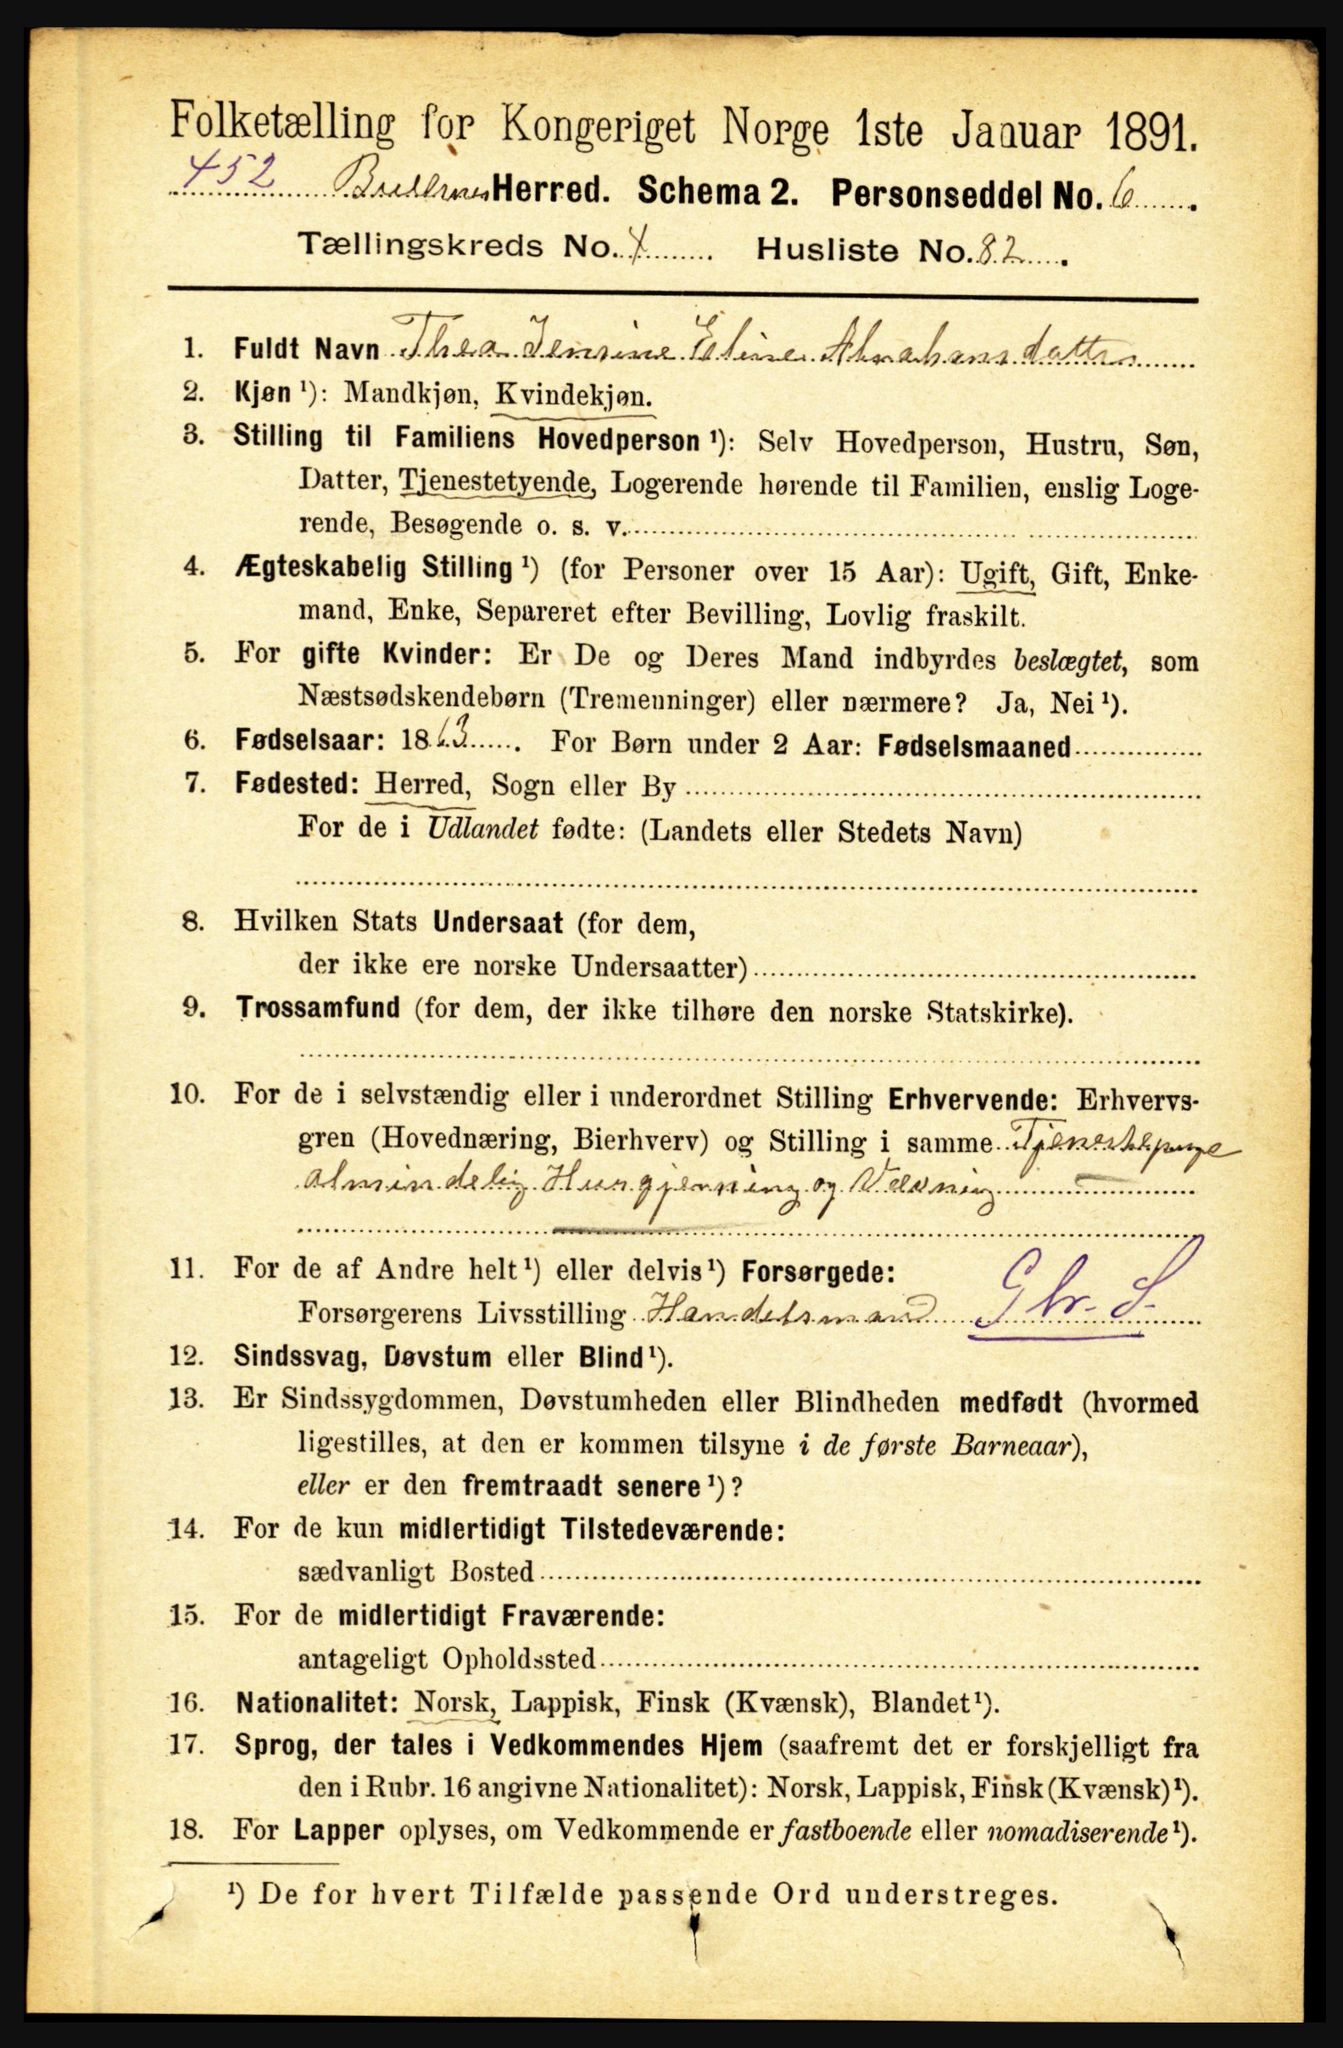 Folketælling for Kongeriget Norge 1ste Januar 1891.
452 Herred. Schema 2. Personseddel No. 6
Tællingskreds No. 4 Husliste No. 82
1. Fuldt Navn Thea Jensine Eline Abrahamsdatter
2. Kjøn ¹): Mandkjøn, Kvindekjøn.
3. Stilling til Familiens Hovedperson ¹): Selv Hovedperson, Hustru, Søn,
Datter, Tjenestetyende, Logerende hørende til Familien, enslig Loge-
rende, Besøgende o. s. v.
4. Ægteskabelig Stilling ¹) (for Personer over 15 Aar): Ugift, Gift, Enke-
mand, Enke, Separeret efter Bevilling, Lovlig fraskilt.
5. For gifte Kvinder: Er De og Deres Mand indbyrdes beslægtet, som
Næstsødskendebørn (Tremenninger) eller nærmere? Ja, Nei ¹).
6. Fødselsaar: 1863. For Børn under 2 Aar: Fødselsmaaned
7. Fødested: Herred, Sogn eller By
For de i Udlandet fødte: (Landets eller Stedets Navn)
8. Hvilken Stats Undersaat (for dem,
der ikke ere norske Undersaatter)
9. Trossamfund (for dem, der ikke tilhøre den norske Statskirke).
10. For de i selvstændig eller i underordnet Stilling Erhvervende: Erhvervs-
gren (Hovednæring, Bierhverv) og Stilling i samme Tjenestepige
almindelig Husgjerning og Vævning
11. For de af Andre helt ¹) eller delvis ¹) Forsørgede:
Forsørgerens Livsstilling Handelsmand
12. Sindssvag, Døvstum eller Blind ¹).
13. Er Sindssygdommen, Døvstumheden eller Blindheden medfødt (hvormed
ligestilles, at den er kommen tilsyne i de første Barneaar),
eller er den fremtraadt senere ¹)?
14. For de kun midlertidigt Tilstedeværende:
sædvanligt Bosted
15. For de midlertidigt Fraværende:
antageligt Opholdssted
16. Nationalitet: Norsk, Lappisk, Finsk (Kvænsk), Blandet ¹).
17. Sprog, der tales i Vedkommendes Hjem (saafremt det er forskjelligt fra
den i Rubr. 16 angivne Nationalitet): Norsk, Lappisk, Finsk (Kvænsk) ¹).
18. For Lapper oplyses, om Vedkommende er fastboende eller nomadiserende ¹).
¹) De for hvert Tilfælde passende Ord understreges.